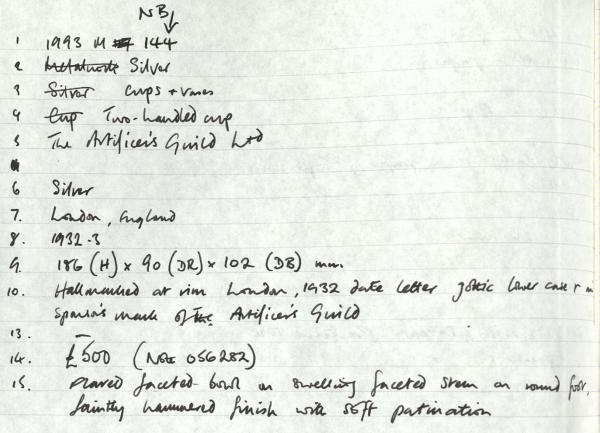 NB
1 1993 M 144
2 Metalwork Silver
3 Silver cups + vases
4 Cup Two-handled cup
5 The Artificer's Guild Ltd
6 Silver
7. London, England
8. 1932-3
9. 186 (H) x 90 (DR) x 102 (DB) mm.
10. Hallmarked at rim London, 1932 date letter gothic lower case r in
Sponsor's mark of the Artificer's Guild
13. —
14. £500 (Note 056282)
15. Flared faceted bowl on swelling faceted stem on round foot,
faintly hammered finish with soft patination